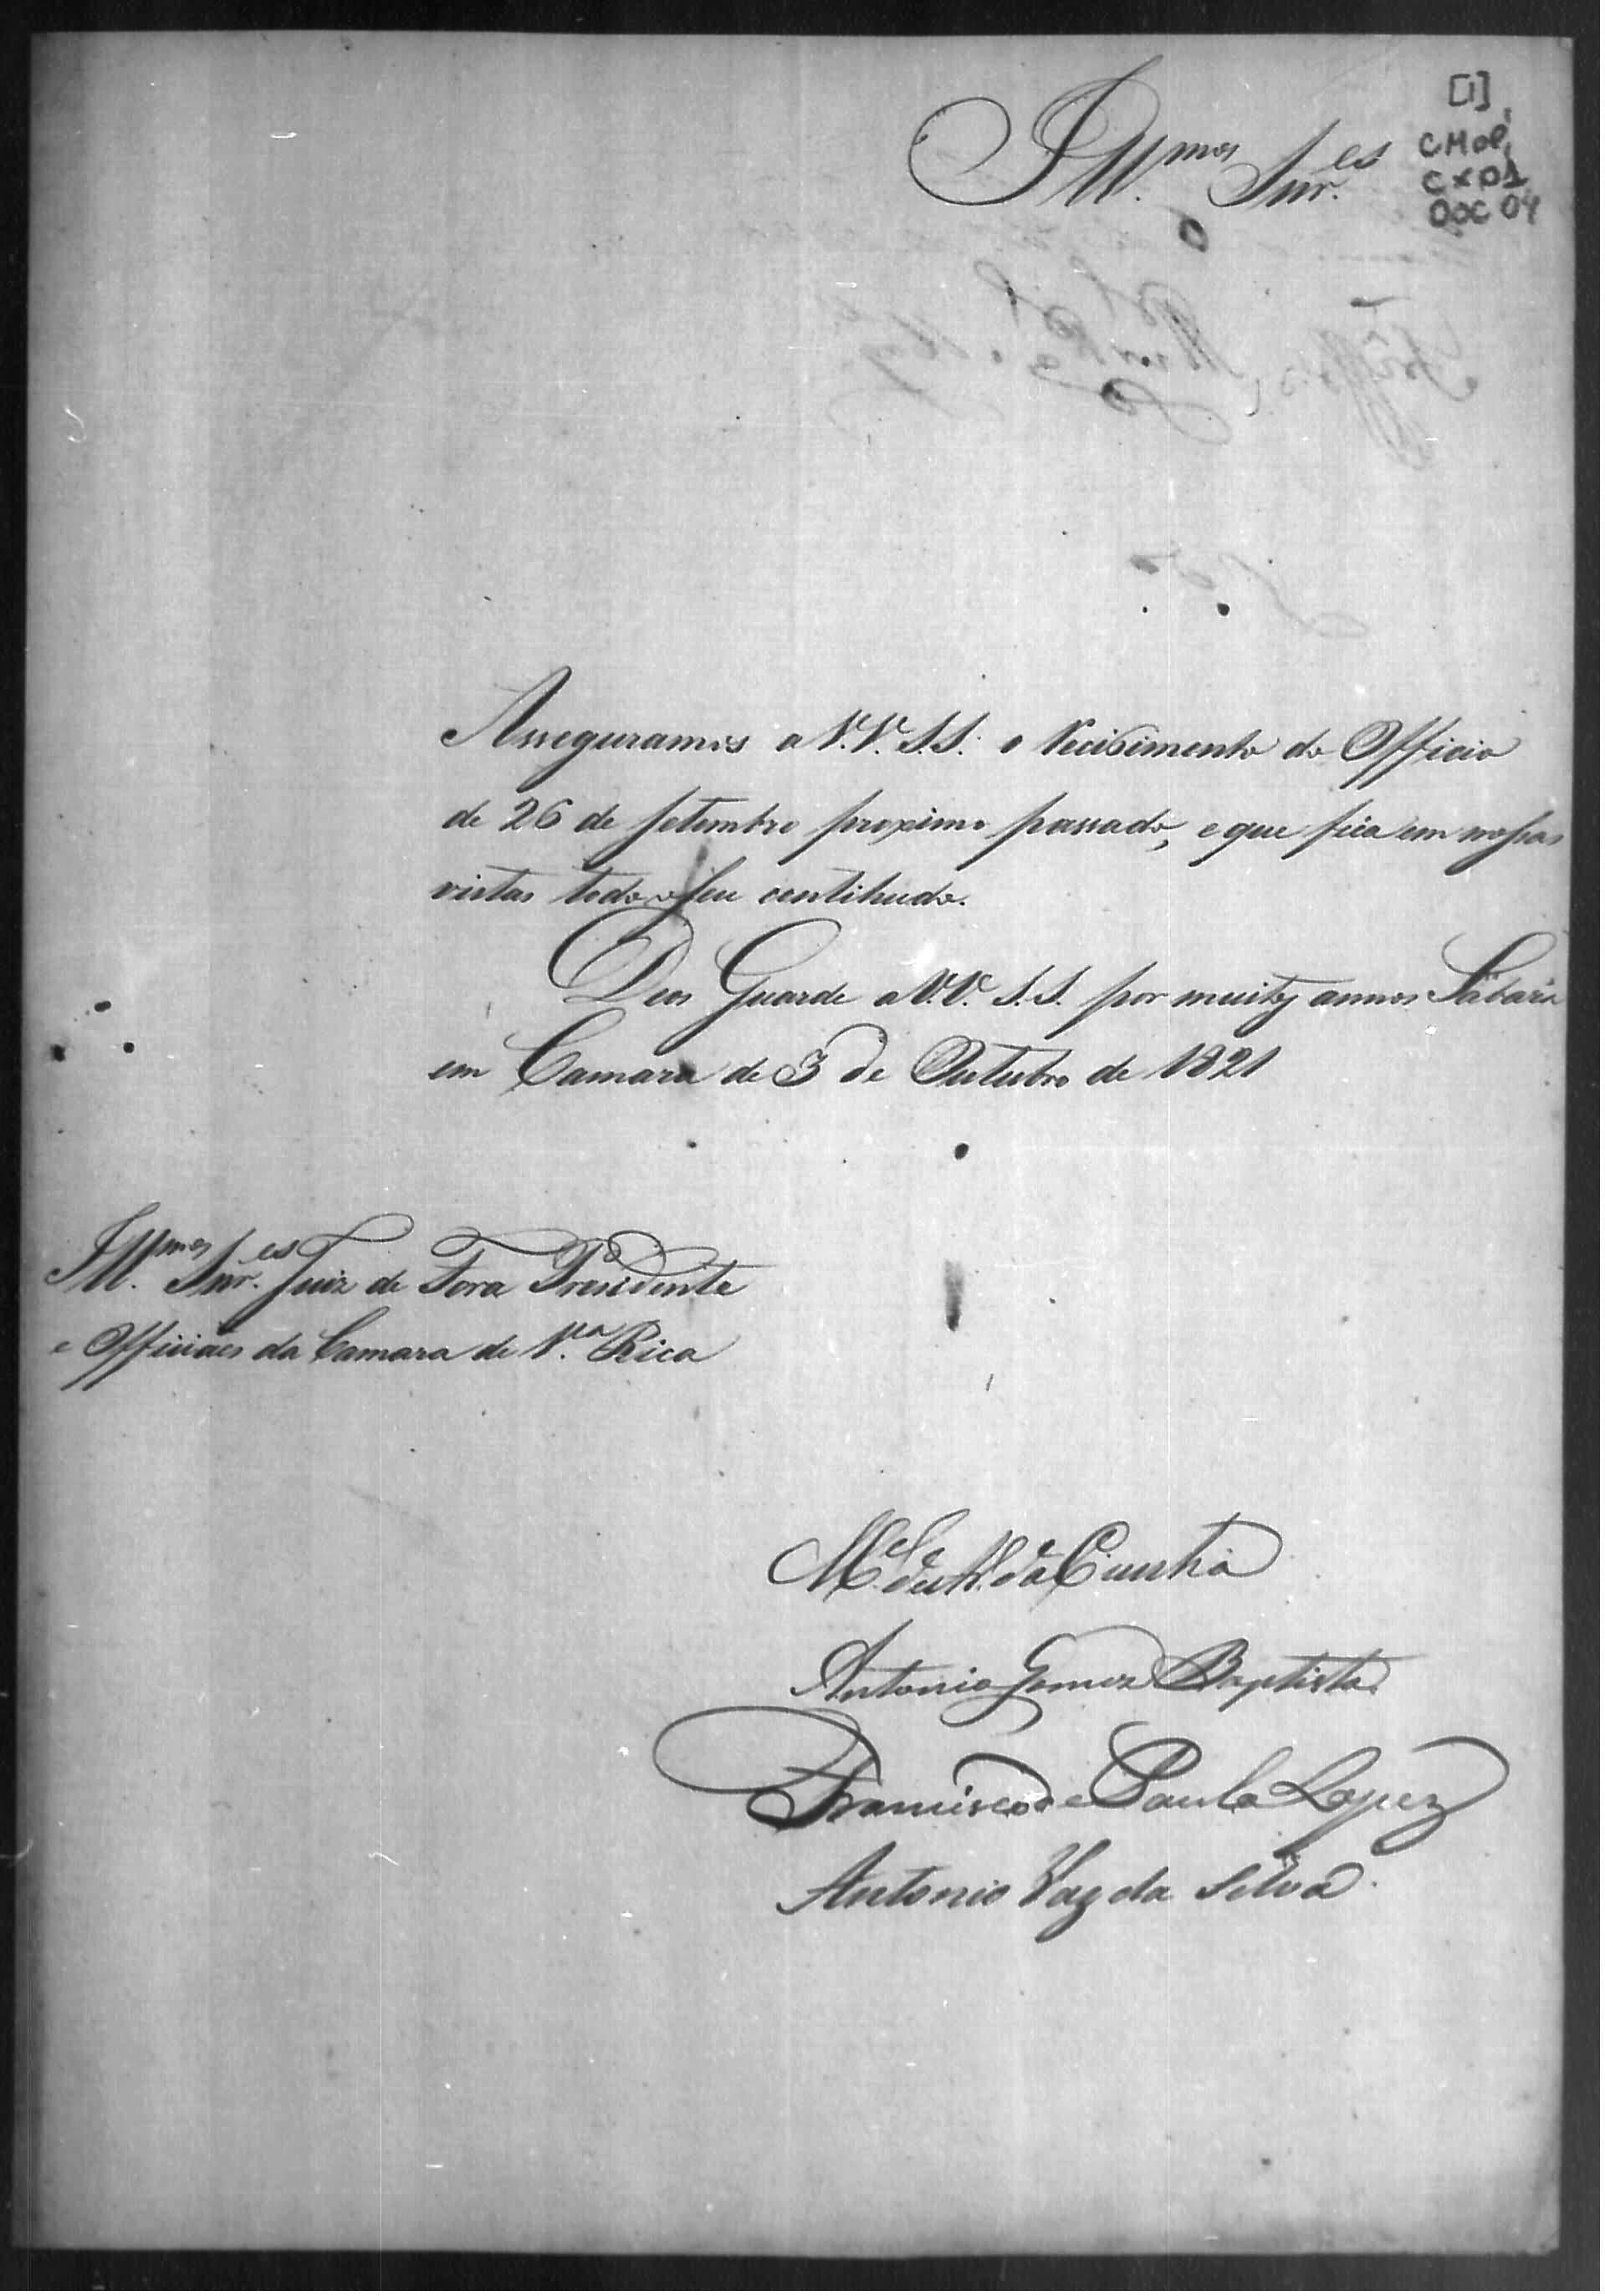 [1]
CMOP
CX 01
DOC 04
Ill.mos Snr.es
Asseguramos a V.V. S.S. o Recibimento do Officio
de 26 de Setembro proximo passado, e que fica em nossas
vistas todo o Seu contihudo.
Deos Guarde a V.V. S.S. por muitos annos Sabará
em Camara de 3 de Outubro de 1821
Ill.mos Snr.es Juiz de Fora Presidente
e Officiaes da Camara de V.a Rica
da Cunha
Antonio Gomez Baptista
Francisco de Paula Lopez
Antonio Vaz da Silva.